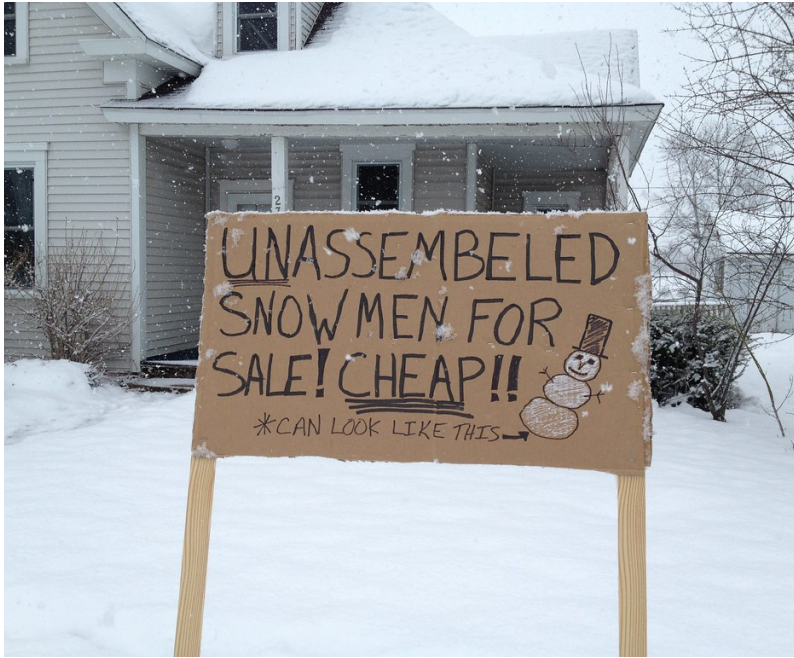 27
UNASSEMBELED
SNOWMEN FOR
SALE! CHEAP!!
*CAN LOOK LIKE THIS→